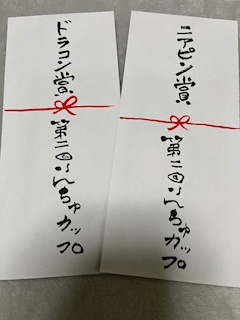 ニアピン賞
第二回りんちゅカップ
ドラコン賞
第二回りんちゅカップ